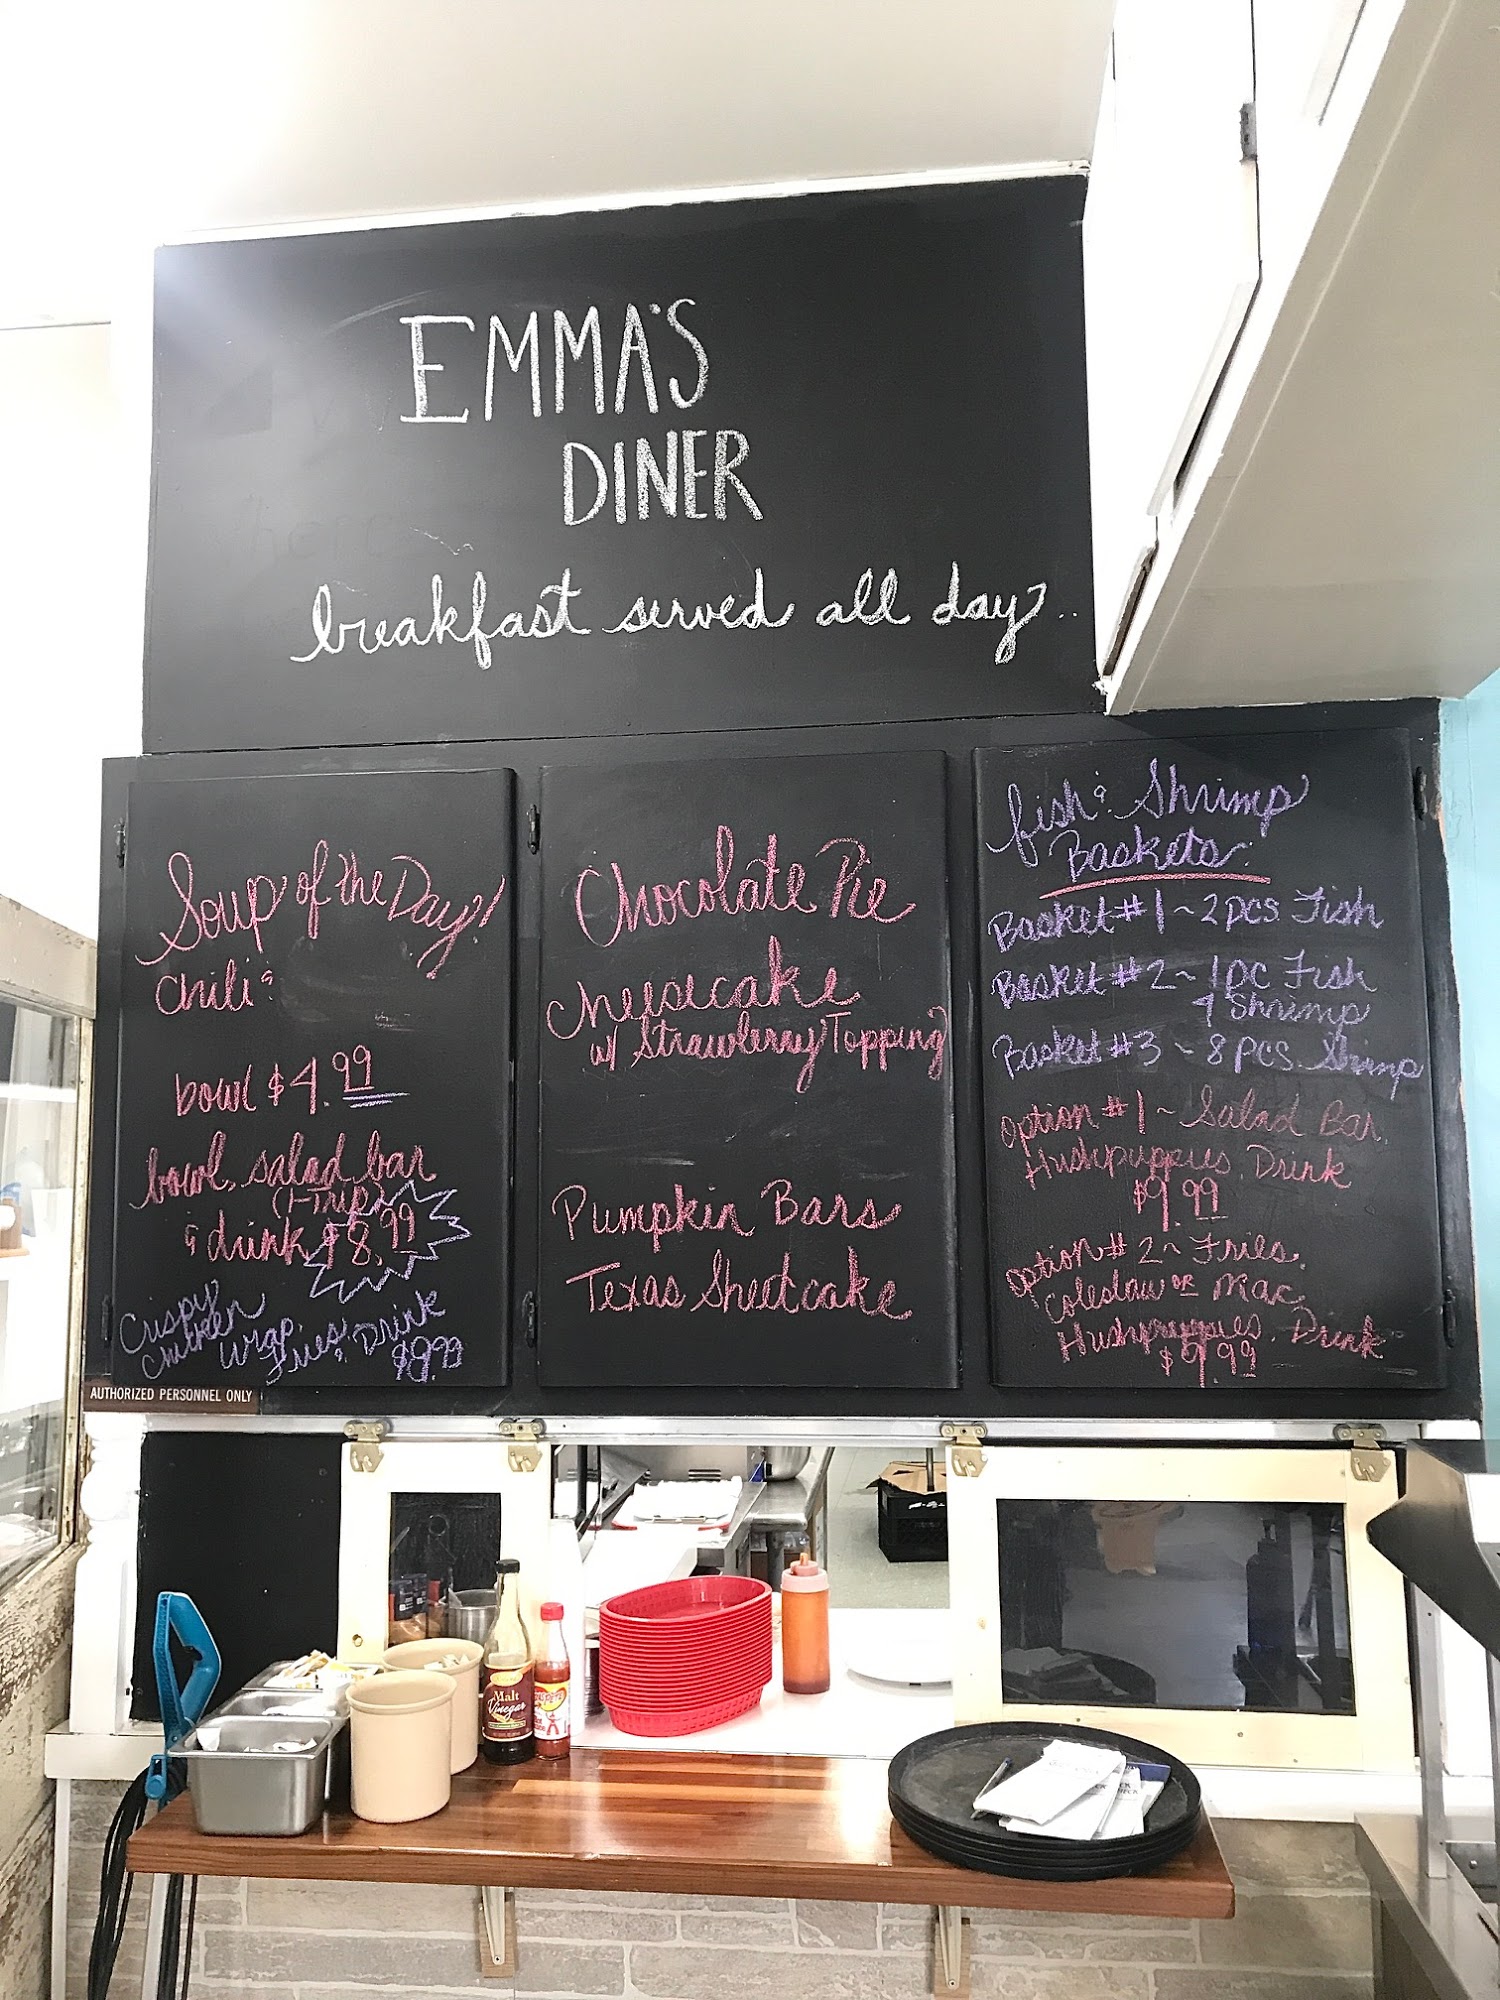 EMMA'S
DINER
breakfast served all day..
Soup of the Day!
Chili &
bowl $4.99
bowl, salad bar
(1-Trip)
& drink $8.99
Crispy
Chicken Wrap,
Fries & Drink
$9.99
AUTHORIZED PERSONNEL ONLY
Chocolate Pie
Cheesecake
w/ Strawberry Topping
Pumpkin Bars
Texas Sheetcake
fish & Shrimp
Baskets:
Basket #1 ~ 2 pcs Fish
Basket #2 ~ 1 pc Fish
4 Shrimp
Basket #3 ~ 8 pcs. Shrimp
Option #1 ~ Salad Bar,
Hushpuppies, Drink
$9.99
Option #2 ~ Fries,
Coleslaw or Mac,
Hushpuppies, Drink
$9.99
Malt
Vinegar